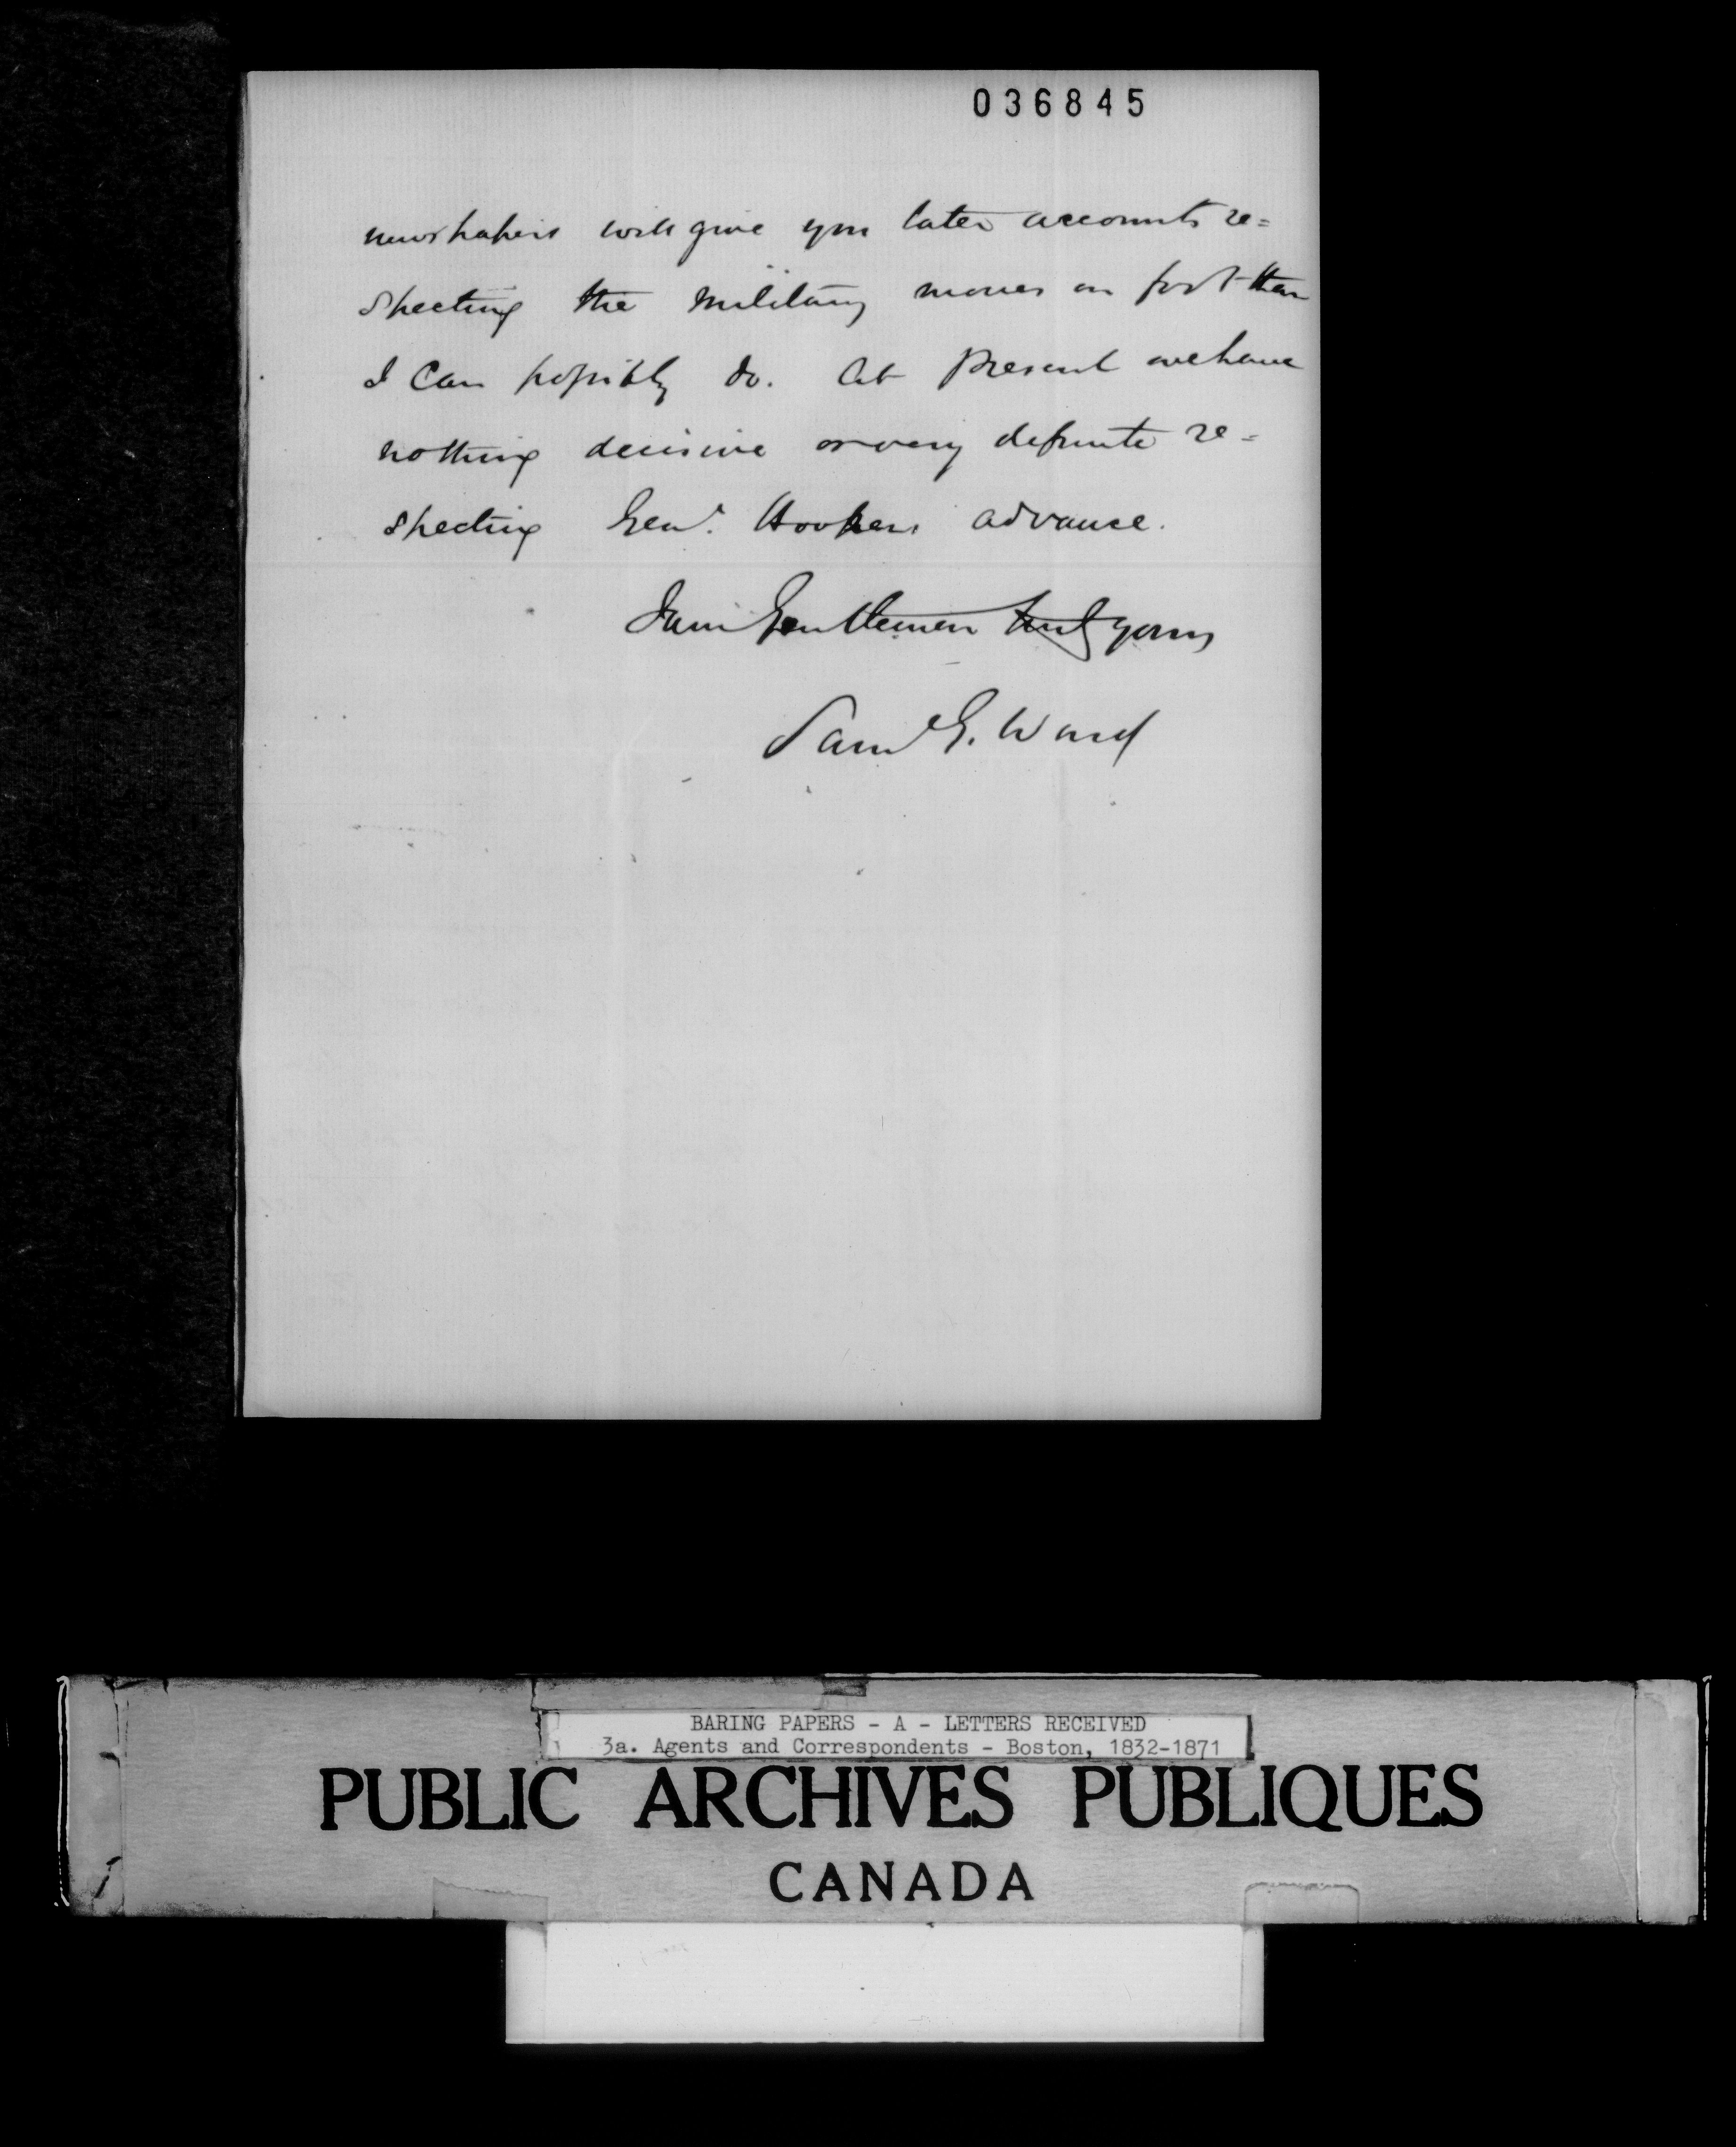 036845
newspapers will give you later accounts re=
specting the military moves on foot than
I can possibly do. At present we have
nothing decisive or very definite re=
specting Genl. Hookers advance.
I am Gentlemen truly yours
Saml G. Ward
BARING PAPERS - A - LETTERS RECEIVED
3a. Agents and Correspondents - Boston, 1832-1871
PUBLIC ARCHIVES PUBLIQUES
CANADA